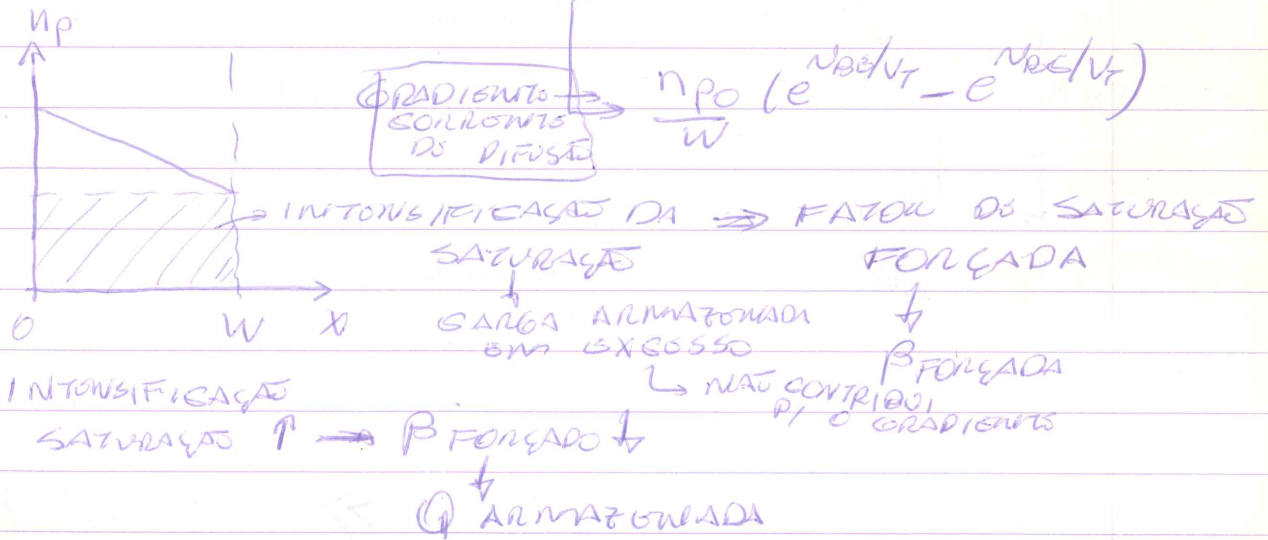 np
GRADIENTE
CORRENTE
DE DIFUSÃO
npo/W (e^vBE/VT - e^vBC/VT)
INTENSIFICAÇÃO DA
SATURAÇÃO
FATOR DE SATURAÇÃO
FORÇADA
0 W X
CARGA ARMAZENADA
EM EXCESSO
NÃO CONTRIBUI
P/ O GRADIENTE
β FORÇADA
INTENSIFICAÇÃO
SATURAÇÃO ↑ → β FORÇADO ↓
Q ARMAZENADA